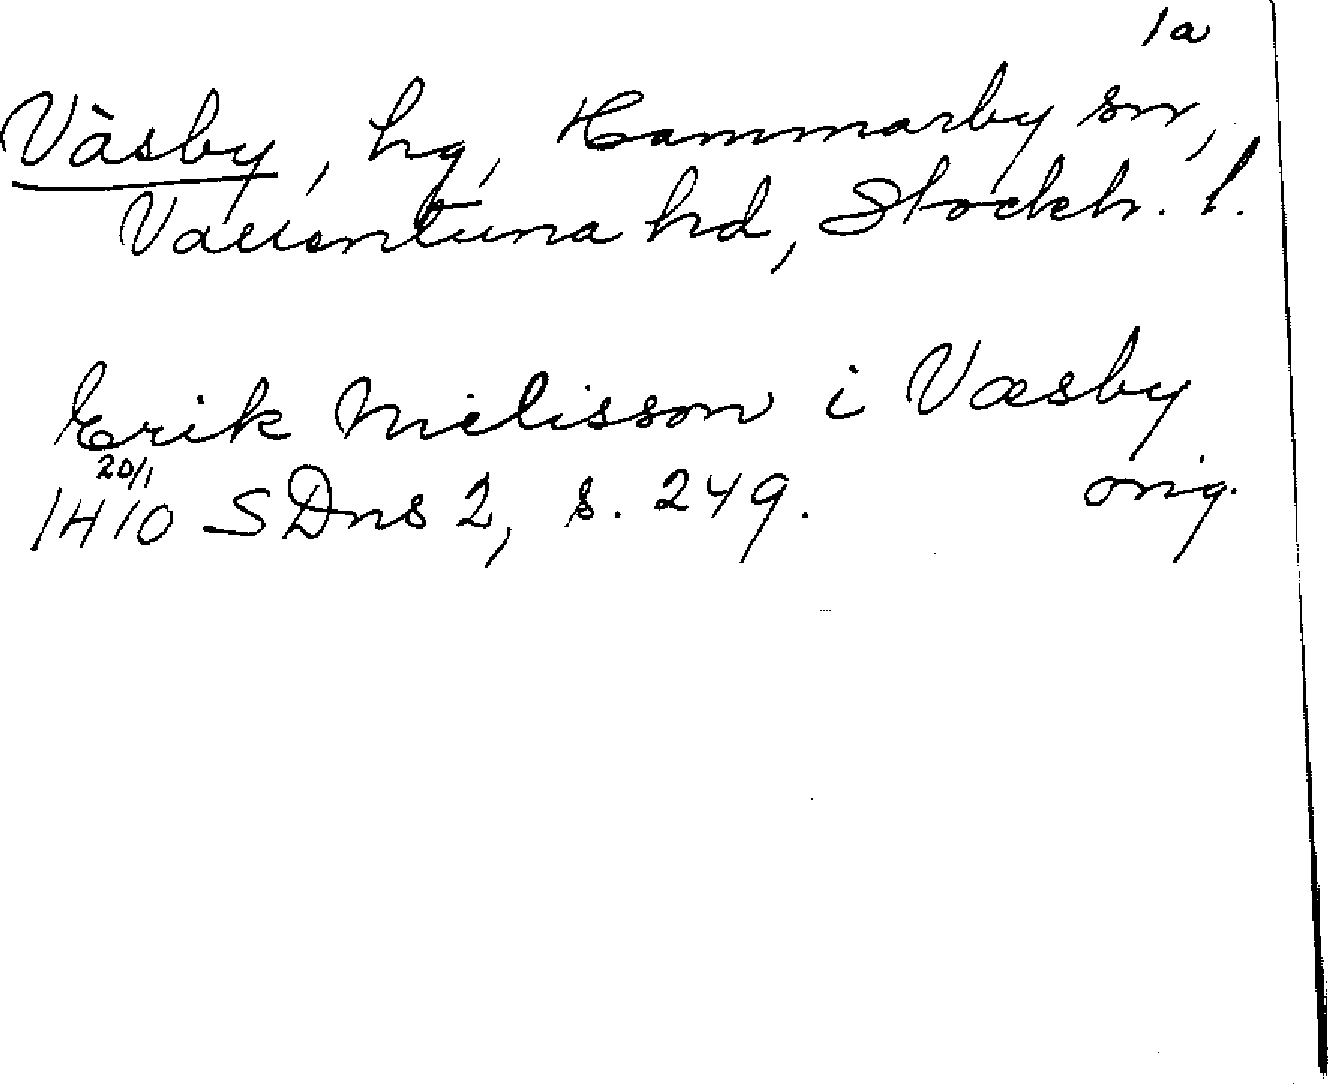 1a
Väsby, hg, Hammarby sn,
Vallentuna hd, Stockh. l.
Erik Nielisson i Væsby
20/1
1410 SDns 2, s. 249. orig.